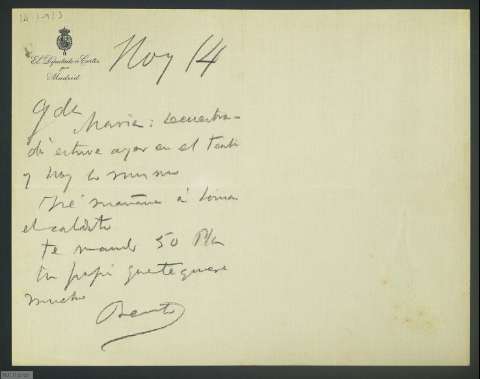 El Diputado á Cortes
por
Madrid
Hoy 14
Qda
Maria:
dí estuve ayer en el
y hoy lo mismo
Iré mañana á tomar
el caldito
te mando 50 Pts
tu papá que te quiere
mucho
Benito